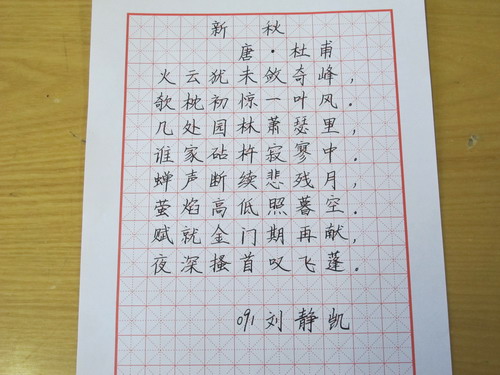 新秋
唐·杜甫
火云犹未敛奇峰，
欹枕初惊一叶风．
几处园林萧瑟里，
谁家砧杵寂寥中．
蝉声断续悲残月，
萤焰高低照暮空．
赋就金门期再献，
夜深搔首叹飞蓬．
091刘静凯